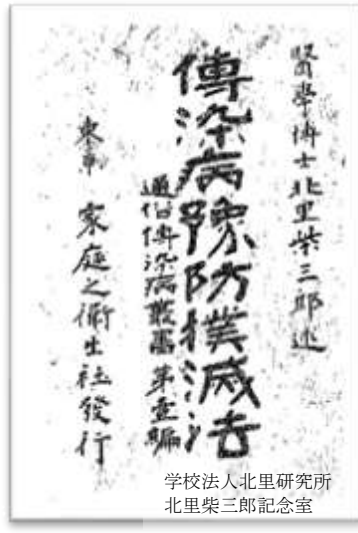 醫學博士北里柴三郎述
傳染病豫防撲滅法
通俗傳染病叢書第壹編
東京 家庭之衛生社發行
学校法人北里研究所
北里柴三郎記念室